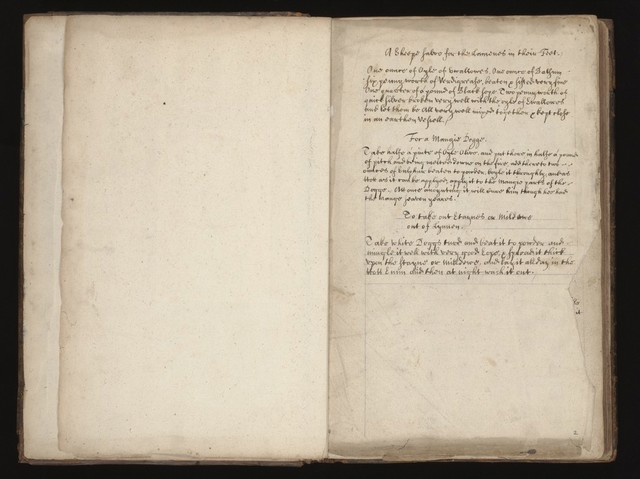 A Sheeps Salve for the Lamenes in their Feet.
One ounce of Oyle of Swallowes, One ounce of
six penny worth of Verdigrease, beaten & sifted very fine
One quarter of a pound of Black Sope. Two penny worth of
quick silver beaten very well with the Oyle of Swallowes
and let them be All very well mixed together & kept close
in an earthen Vessell.
For a Mangie Dogge.
Take halfe a pinte of Oyle Olive, and put there in halfe a pound
of pitch and being melted downe on the fire, add thereto two
ounces of Sulphur beaten to powder, boyle it throughly, and as
hot as it can be applyed, apply it to the Mangie parts of the
Dogge. At once anoynting it will cure him though hee had
the Mange seaven yeares.
To take out Staynes or Mildewe
out of Lynnen.
Take white Doggs turd and beat it to powder and
mingle it well with very good Sope, & spread it thick
upon the Stayne or Milldewe, and lay it all day in the
hott Sunn and then at night wash it out.
2